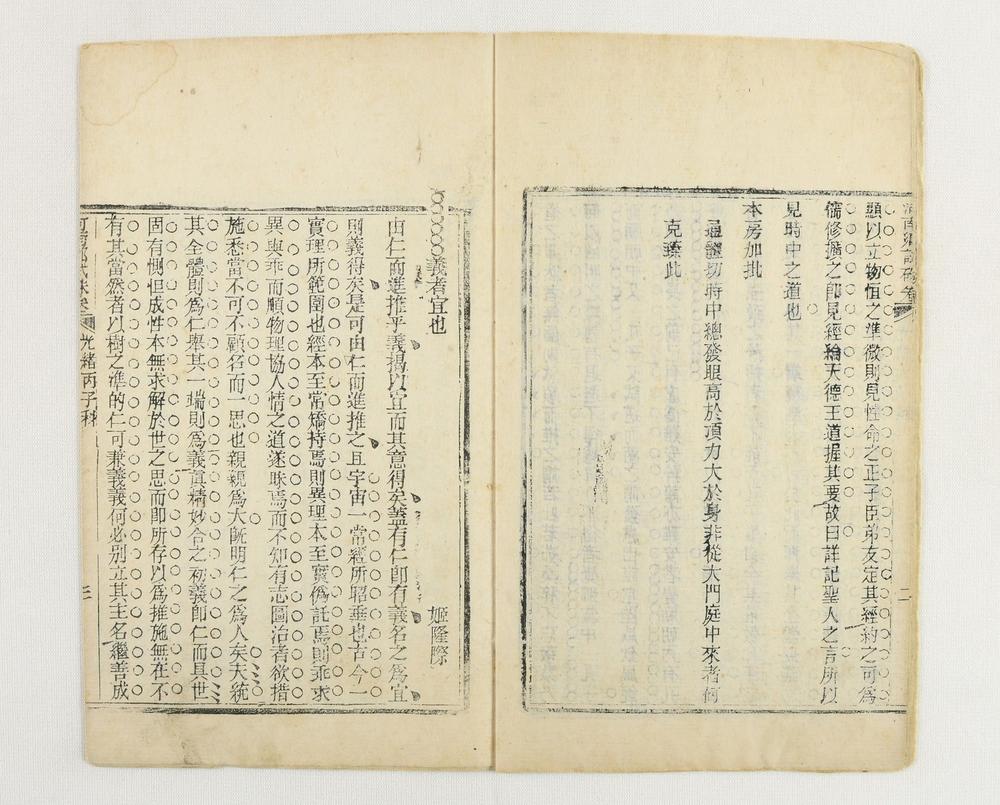 顯以立物恒之準微則見性命之正子臣弟友定其經約之可為
儒修擴之即見經綸天德王道握其要故曰詳記聖人之言所以
見時中之道也
本房加批
通體切時中總發眼高於頂力大於身非從大門庭中來者何
克臻此
二
義者宜也
姬隆際
由仁而進推乎義揭以宜而其意得矣蓋有仁即有義名之為宜
則義得矣是可由仁而進推之且宇宙一當經所昭垂也古今一
實理所範圍也經本至常矯持焉則異理本至實偽託焉則乖求
異與乖而順物理協人情之道遂昧焉而不知有志圖治者欲措
施悉當不可不顧名而一思也親親為大既明仁之為人矣夫統
其全體則為仁舉其一端則為義眞精妙合之初義即仁而具世
固有惻怛成性本無求解於世之思而即所存以為推施無在不
有其當然者以樹之準的仁可兼義義何必別立其主名繼善成
光緒丙子科
三